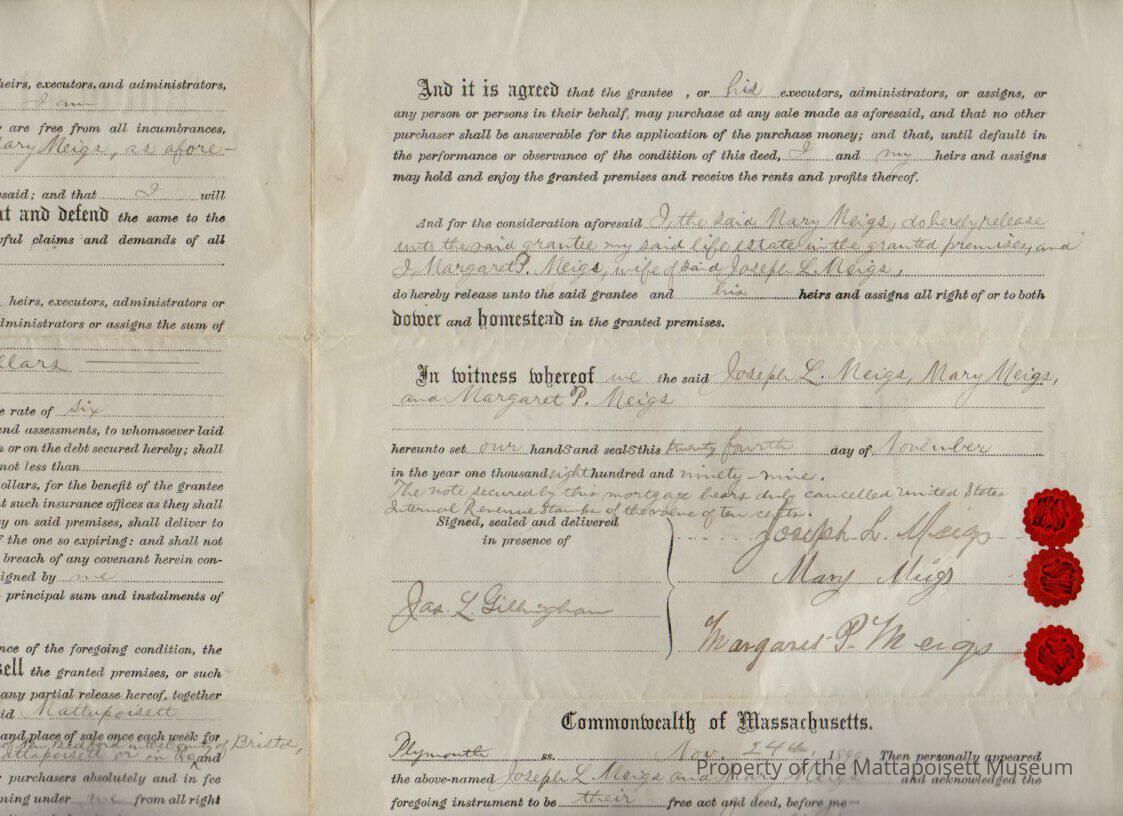 heirs, executors, and administrators,
I am
are free from all incumbrances,
Mary Meigs, as afore-
said; and that I will
and defend the same to the
ful claims and demands of all
heirs, executors, administrators or
dministrators or assigns the sum of
llars
e rate of six
nd assessments, to whomsoever laid
or on the debt secured hereby; shall
not less than
ollars, for the benefit of the grantee
t such insurance offices as they shall
y on said premises, shall deliver to
f the one so expiring; and shall not
breach of any covenant herein con-
igned by me
principal sum and instalments of
nce of the foregoing condition, the
sell the granted premises, or such
any partial release hereof, together
id Mattapoisett
and place of sale once each week for
of New Bedford in the County of Bristol,
Mattapoisett or in and
purchasers absolutely and in fee
ning under from all right
And it is agreed that the grantee , or his executors, administrators, or assigns, or
any person or persons in their behalf, may purchase at any sale made as aforesaid, and that no other
purchaser shall be answerable for the application of the purchase money; and that, until default in
the performance or observance of the condition of this deed, I and my heirs and assigns
may hold and enjoy the granted premises and receive the rents and profits thereof.
And for the consideration aforesaid I, the said Mary Meigs, do hereby release
unto the said grantee my said life estate in the granted premises, and
I, Margaret P. Meigs, wife of said Joseph L. Meigs,
do hereby release unto the said grantee and his heirs and assigns all right of or to both
dower and homestead in the granted premises.
In witness whereof we the said Joseph L. Meigs, Mary Meigs,
and Margaret P. Meigs
hereunto set our hands and seals this twenty fourth day of November
in the year one thousand eight hundred and ninety-nine.
The note secured by this mortgage bears duly cancelled United States
Internal Revenue Stamps of the value of ten cents.
Signed, sealed and delivered
in presence of
Joseph L. Meigs
Mary Meigs
Jas. L. Gillingham
Margaret P. Meigs
Commonwealth of Massachusetts.
Plymouth ss. Nov. 24th, 1899 Then personally appeared
the above-named Joseph L. Meigs and and acknowledged the
Property of the Mattapoisett Museum
foregoing instrument to be their free act and deed, before me—